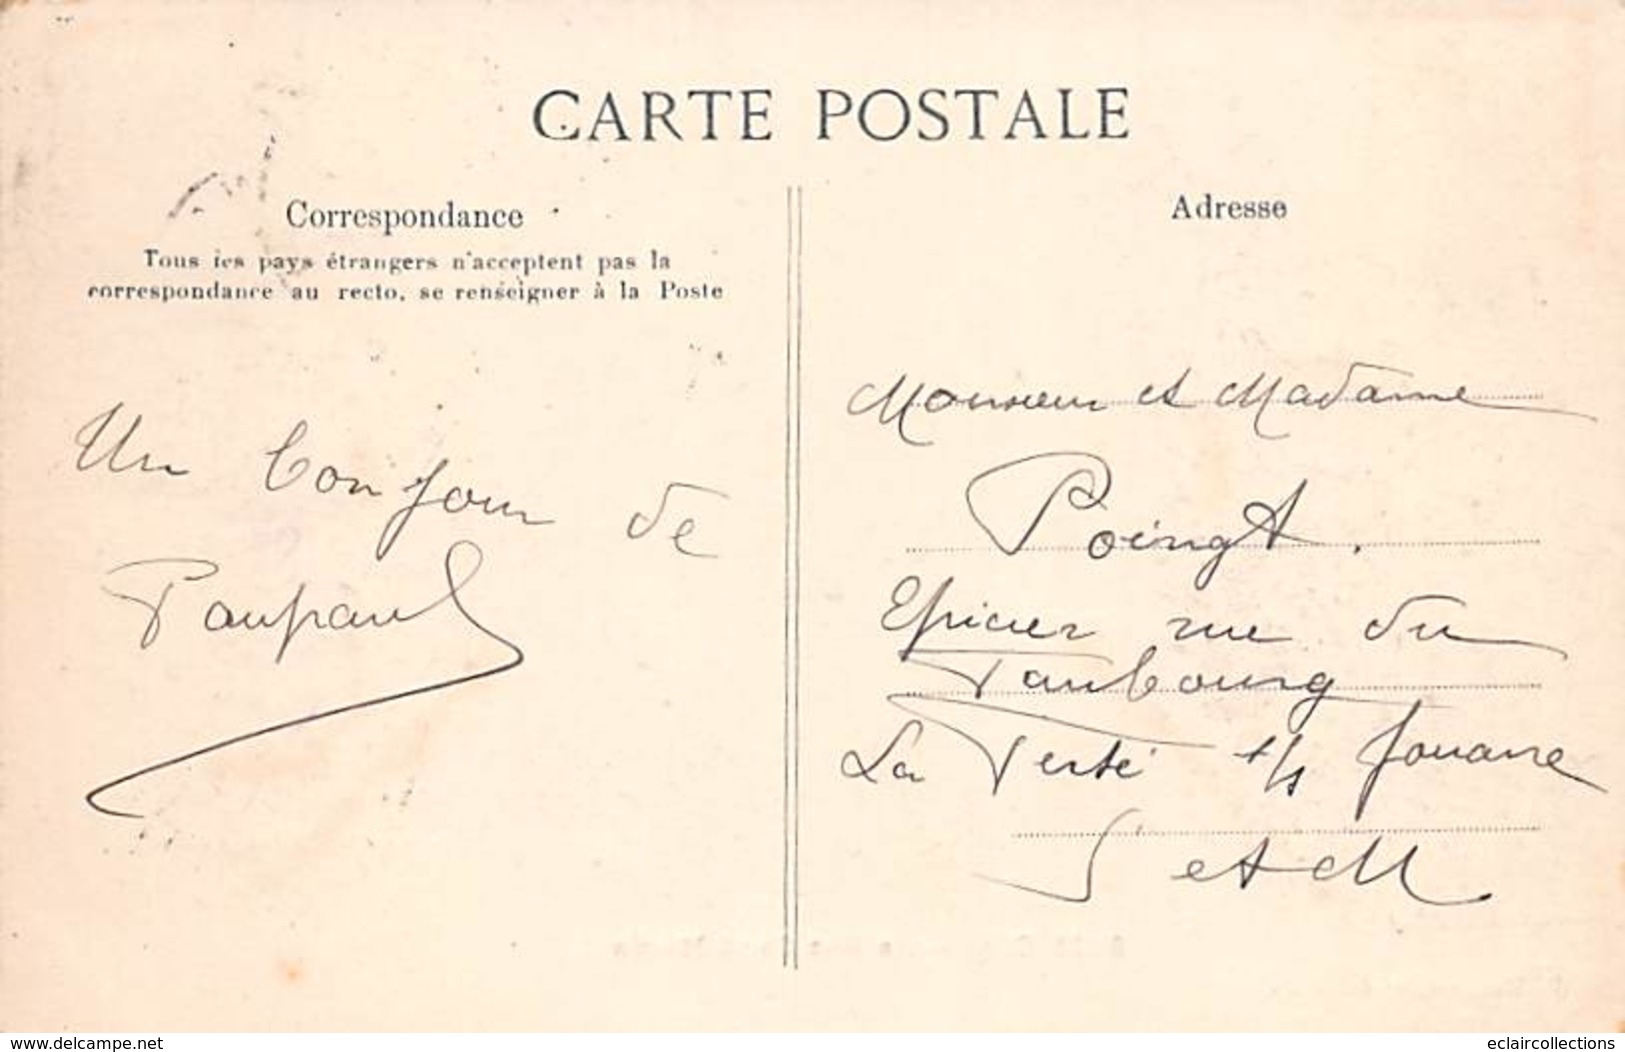 CARTE POSTALE
Correspondance
Tous les pays étrangers n'acceptent pas la
correspondance au recto, se renseigner à la Poste
Un bonjour de
Paupaul
Adresse
Monsieur et Madame
Poingt.
Epicier rue du
Faubourg
La Ferté s/s Jouarre
S et M
www.delcampe.net
eclaircollections